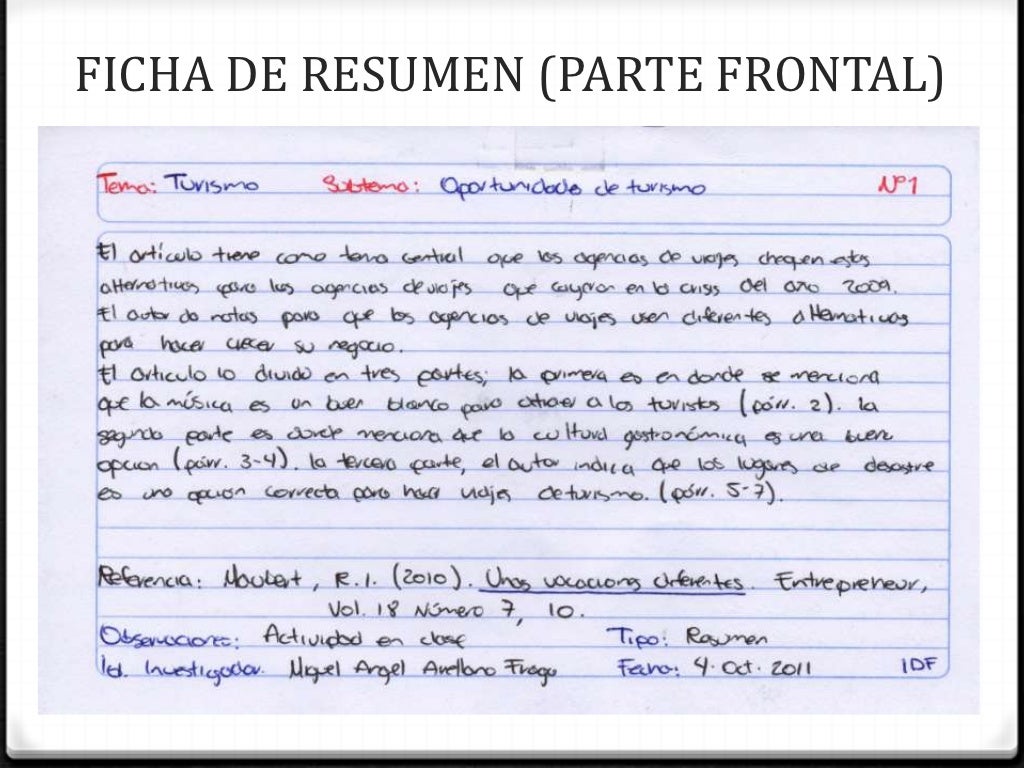 FICHA DE RESUMEN (PARTE FRONTAL)
Tema: Turismo Subtema: Oportunidades de turismo Nº1
El artículo tiene como tema central que las agencias de viajes chequen estas
alternativas para las agencias de viajes que cayeron en la crisis del año 2009.
El autor da notas para que las agencias de viajes usen diferentes alternativas
para hacer crecer su negocio.
El articulo lo divido en tres partes; la primera es en donde se menciona
que la música es un buen blanco para atraer a los turistas (párr. 2). la
segunda parte es donde menciona que la cultura gastronómica es una buena
opcion (párr. 3-4). la tercera parte, el autor indica que los lugares de desastre
es una opcion correcta para hacer viajes de turismo. (párr. 5-7).
Referencia: Maubert, R.I. (2010). Unas vacaciones diferentes. Entrepreneur,
Vol. 18 Número 7, 10.
Observaciones: Actividad en clase Tipo: Resumen
Id. Investigador. Miguel Angel Arellano Fraga Fecha: 4. Oct. 2011 IDF